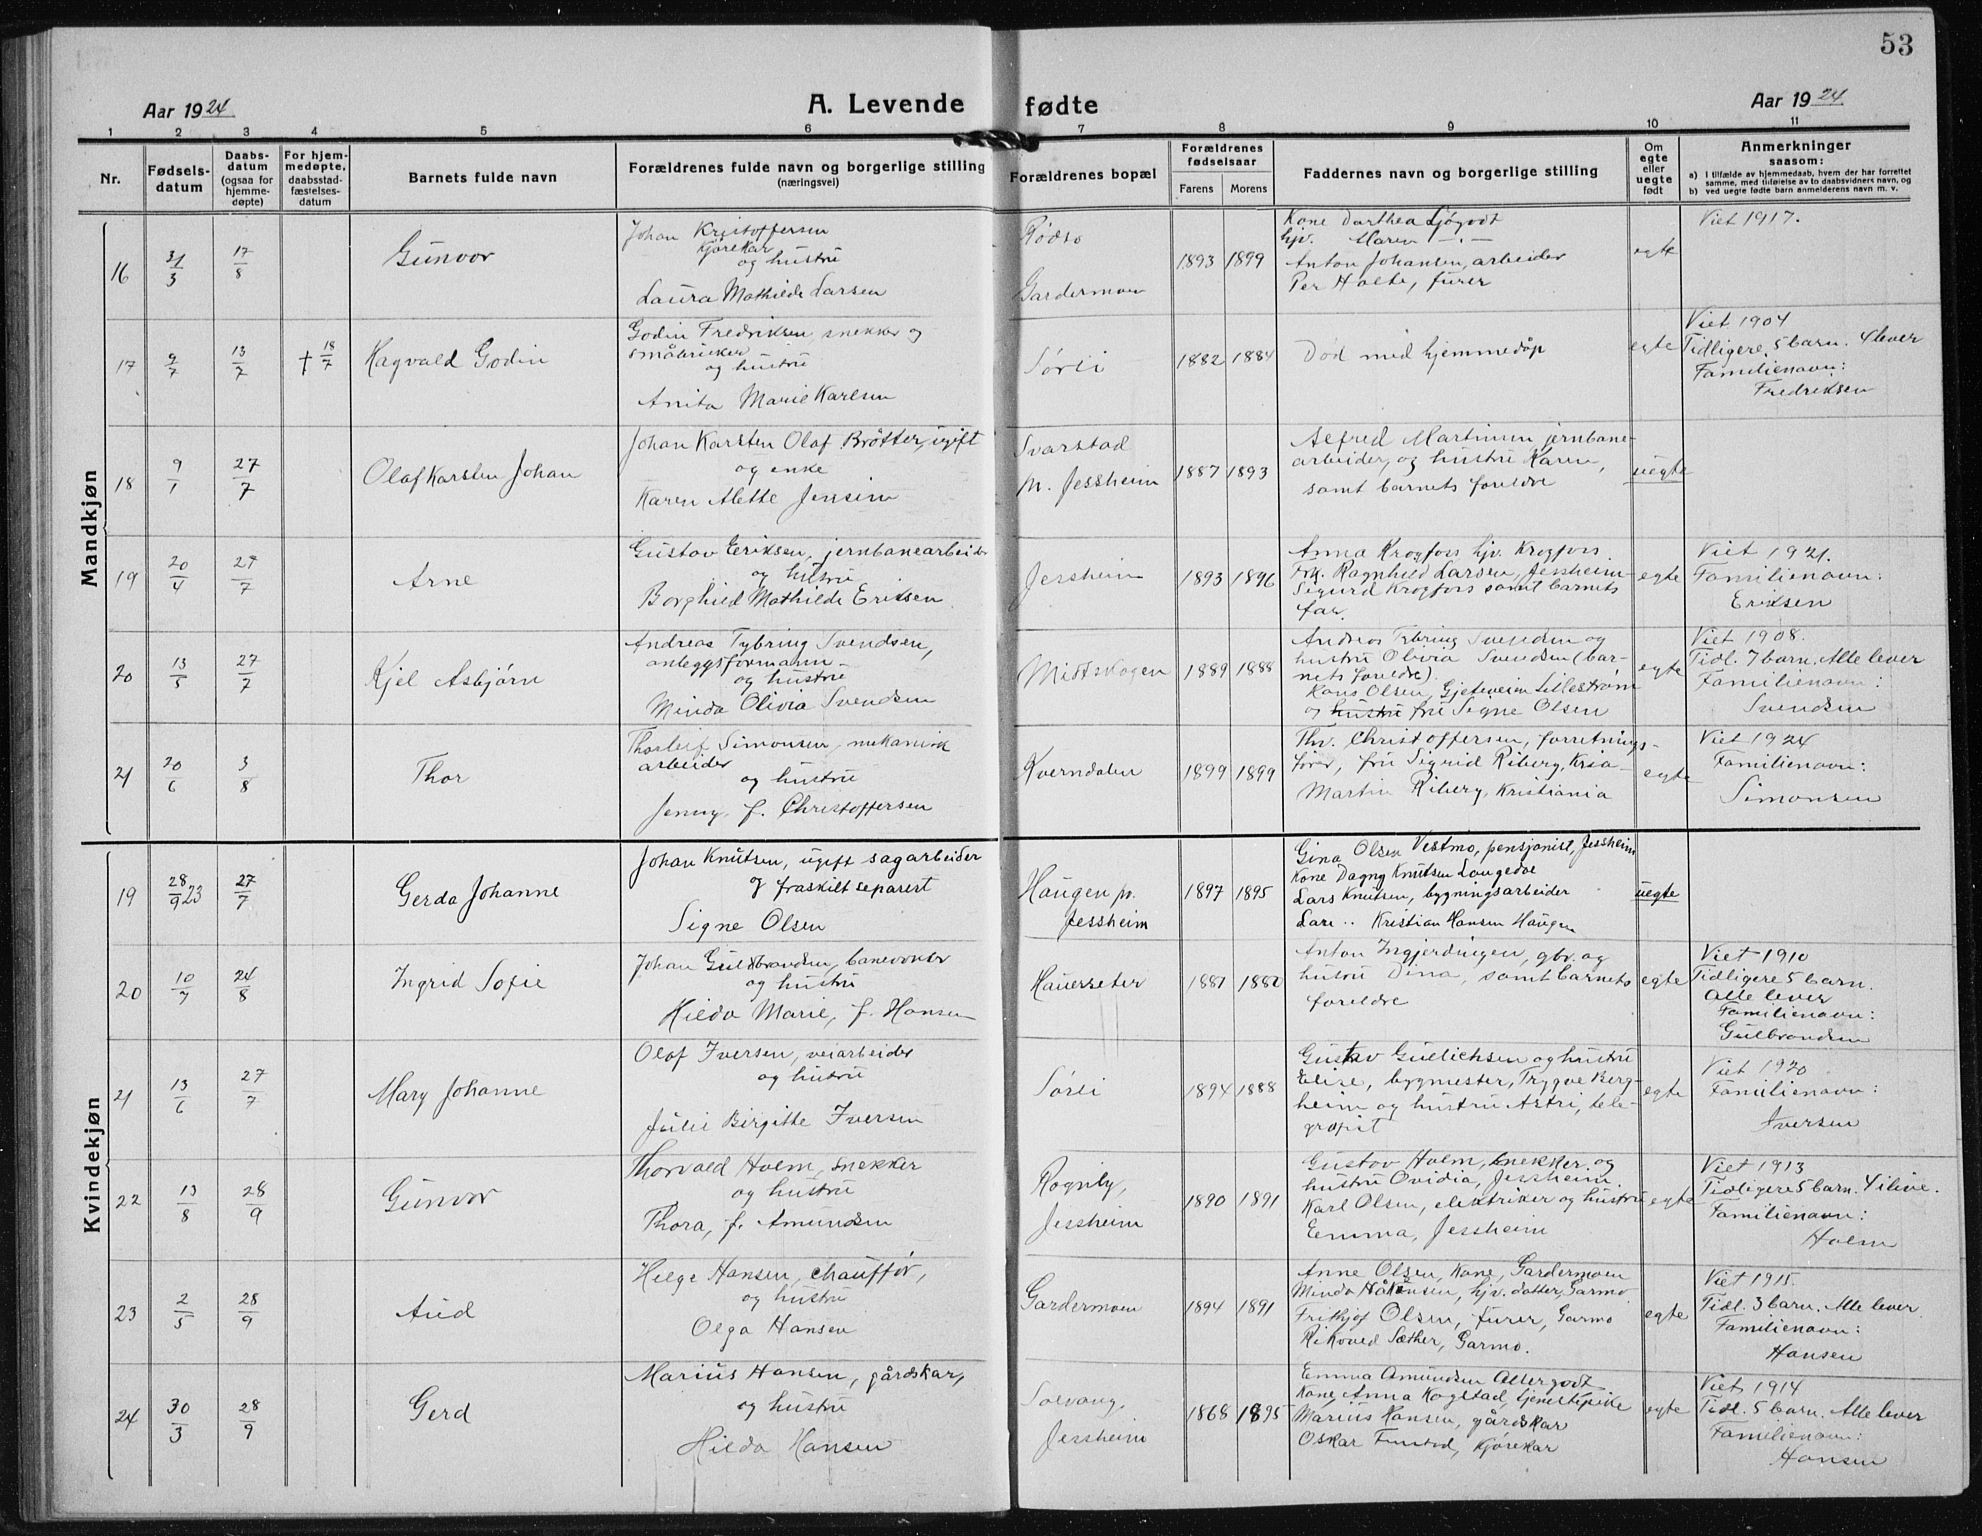 53
Aar 1924
A. Levende fødte
Aar 1924
1 2 3 4 5 6 7 8 9 10 11
Nr.
Fødsels-
datum
Daabs-
datum
(ogsaa for
hjemme-
døpte)
For hjem-
medøpte,
daabsstad-
fæstelses-
datum
Barnets fulde navn
Forældrenes fulde navn og borgerlige stilling
(næringsvei)
Forældrenes bopæl
Forældrenes
fødselsaar
Farens Morens
Faddernes navn og borgerlige stilling
Om
egte
eller
uegte
født
Anmerkninger
saasom:
a) I tilfælde av hjemmedaab, hvem der har forrettet
samme, med tilføielse av to daabsvidners navn, og
b) ved uegte født barn anmelderens navn m. v.
Mandkjøn
16
31/3
17/8
Gunvor
Johan Kristoffersen
Kjørekar
og hustru
Laura Mathilde Larsen
Rødso
Gardermoen
1893 1899
Kone Darthea Ljøgodt
hjv. Maren -"-
Anton Johansen, arbeider
Per Holte, furer
egte
Viet 1917.
17
9/7
13/7
† 18/7
Hagvald Godin
Godin Fredriksen snekker og
småbruker
og hustru
Anita Marie Karlsen
Sørli
1882 1884
Død med hjemmedåp
egte
Viet 1904
Tidligere 5 barn. 4 lever
Familienavn:
Fredriksen
18
9/1
27/7
Olaf Karsten Johan
Johan Karsten Olaf Bråtter, ugift
og enke
Karen Alette Jensen
Svarstad
n. Jessheim
1887 1893
Alfred Martinsen jernbane-
arbeider, og hustru Karen,
samt barnets foreldre
uegte
19
20/4
27/7
Arne
Gustav Eriksen, jernbanearbeider
og hustru
Borghild Mathilde Eriksen
Jessheim
1893 1896
Anna Krogfors hjv. Krogfors
Frk. Ragnhild Larsen, Jessheim
Sigurd Krogfors samt barnets
far
egte
Viet 1921.
Familienavn:
Eriksen
20
13/5
27/7
Kjel Asbjørn
Andreas Tybring Svendsen,
anleggsformann
og hustru
Minda Olivia Svendsen
Midtskogen
1889 1888
Andreas Tybring Svendsen og
hustru Olivia Svendsen (bar-
nets foreldre).
Hans Olsen, Gjeteveien Lillestrøm
og hustru fru Signe Olsen
egte
Viet 1908.
Tidl. 7 barn. Alle lever
Familienavn:
Svendsen
21
20/6
3/8
Thor
Thorleif Simonsen, mekanisk
arbeider
og hustru
Jenny f. Christoffersen
Kverndalen
1899 1899
Thv. Christoffersen, forretnings-
fører, fru Sigrid Riberg, Kria-
Martin Riberg, Kristiania
egte
Viet 1924
Familienavn:
Simonsen
Kvindekjøn
19
28/9 23
27/7
Gerda Johanne
Johan Knutsen, ugift sagarbeider
og fraskilt separert
Signe Olsen
Haugen pr.
Jessheim
1897 1895
Gina Olsen Vestmo, pensjonist, Jessheim
Kone Dagny Knutsen Laugedoe
Lars Knutsen, bygningsarbeider
Kristian Hansen Haugen
uegte
20
10/7
24/8
Ingrid Sofie
Johan Guldbrandsen, banevokter
og hustru
Hilda Marie, f. Hansen
Hauerseter
1881 1880
Anton Ingjerdingen, gbr. og
hustru Dina, samt barnets
foreldre
egte
Viet 1910
Tidligere 5 barn.
Alle lever
Familienavn:
Gulbrandsen
21
13/6
27/7
Mary Johanne
Olaf Iversen, veiarbeider
og hustru
Julie Birgitte Iversen
Sørli
1894 1888
Gustav Gullichsen og hustru
Elise, bygmester, Trygve Berg-
heim og hustru Astri, tele-
grafist
egte
Viet 1920
Familienavn:
Iversen
22
13/8
28/9
Gunvor
Thorvald Holm, snekker
og hustru
Thora, f. Amundsen
Rognby,
Jessheim
1890 1891
Gustav Holm, snekker og
hustru Ovidia, Jessheim.
Karl Olsen, elektriker og hustru
Emma, Jessheim
egte
Viet 1913
Tidligere 5 barn. 4 i live.
Familienavn:
Holm
23
2/5
28/9
Aud
Helge Hansen, chauffør,
og hustru
Olga Hansen
Gardermoen
1894 1891
Anne Olsen, Kone, Gardermoen
Minda Håkensen, hjv. datter, Garmo
Frithjof Olsen, furer, Garmo
Rikoved Sæther, Garmo.
egte
Viet 1915.
Tidl. 3 barn. Alle lever
Familienavn:
Hansen
24
30/3
28/9
Gerd
Marius Hansen, gårdskar,
og hustru
Hilda Hansen
Solvang,
Jessheim
1868 1895
Emma Amundsen Allergodt
Kone, Anna Kogstad, tjenestepike
Marius Hansen, gårdskar
Oskar Funstad, kjørekar
egte
Viet 1914
Tidl. 5 barn. Alle lever
Familienavn:
Hansen